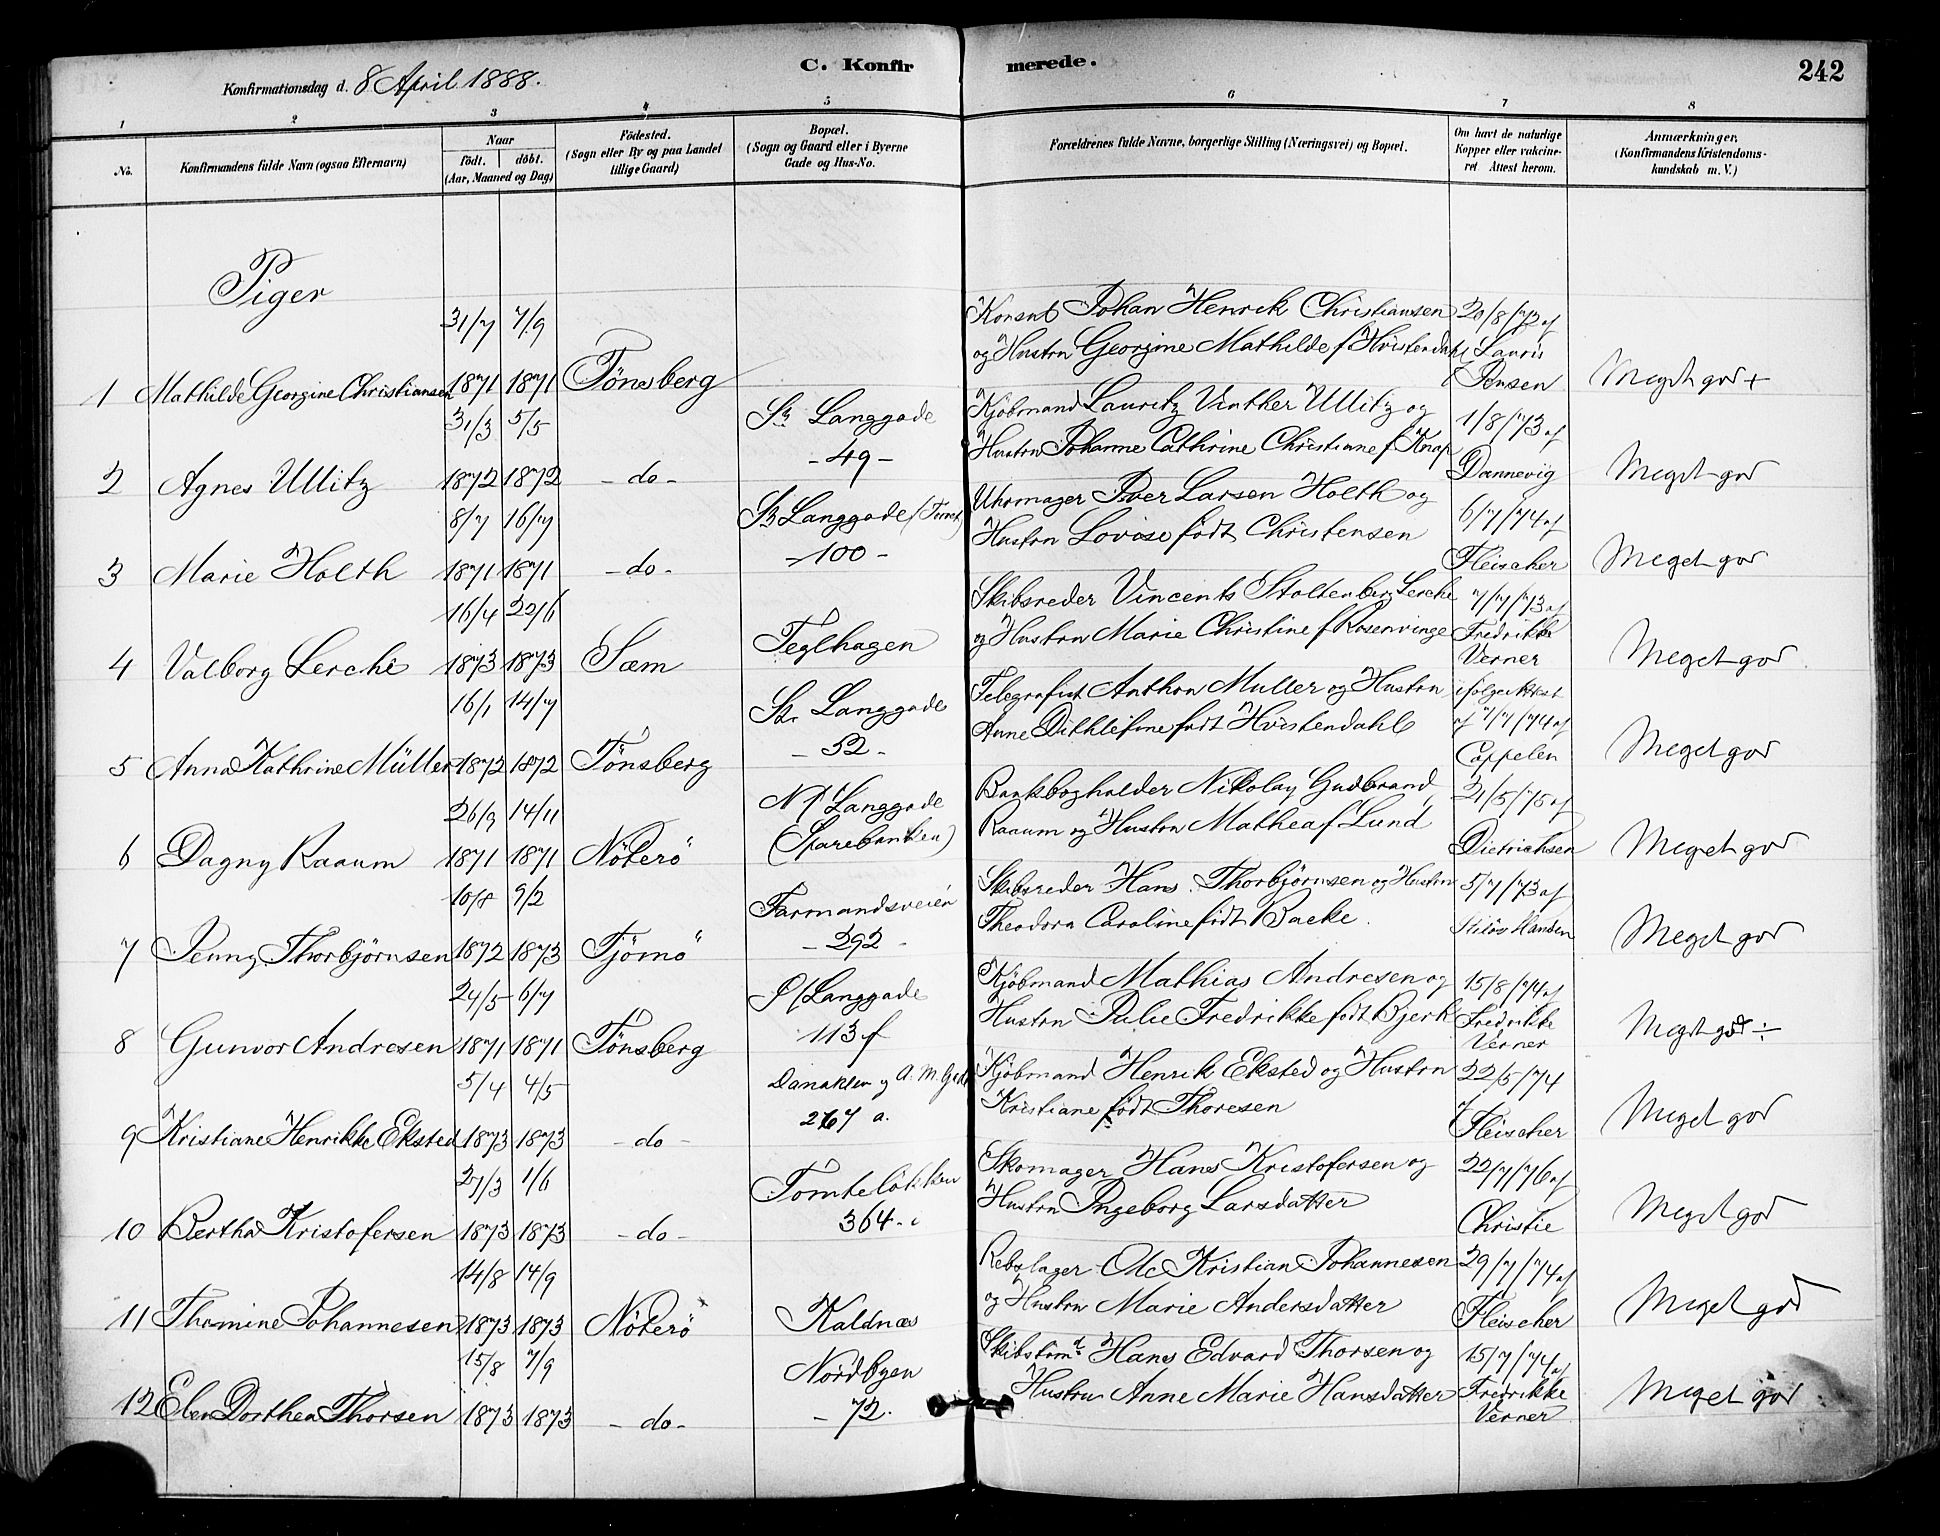 Konfirmationsdag d. 8 April 1888.
C. Konfirmerede.
242
1
2
3
4
5
6
7
8
No.
Konfirmandens fulde Navn (ogsaa Efternavn)
Naar
födt. döbt.
(Aar, Maaned og Dag)
Födested.
(Sogn eller By og paa Landet
tillige Gaard)
Bopæl.
(Sogn og Gaard eller i Byerne
Gade og Hus-No.
Forældrenes fulde Navne, borgerlige Stilling (Næringsvei) og Bopæl.
Om havt de naturlige
Kopper eller vakcine-
ret Attest herom.
Anmærkninger,
(Konfirmandens Kristendoms-
kundskab m. V.)
Piger
31/7 7/9
Konsul Johan Henrik Christiansen 20/8/73 af
og Hustru Georgine Mathilde f Hvistendahl Lauris
1 Mathilde Georgine Christiansen 1871 1871 Tönsberg
Jensen Meget god +
31/3 5/5 St. Langgade Kjöbmand Lauritz Vinther Ullitz og 1/8/73 af
- 49 - Hustru Johanne Cathrine Christiane f Knap
2 Agnes Ullitz 1872 1872 - do - Dannevig Meget god
8/7 16/7 St Langgade Uhrmager Iver Larsen Holth og 6/7/74 af
- 100 - Hustru Lovise födt Christensen
3 Marie Holth 1871 1871 - do - Fleischer Meget god
16/4 22/6 Teglhagen Skibsreder Vincents Stoltenberg Lerche 7/7/73 af
og Hustru Marie Christine f Rosenvinge Fredrikke
4 Valborg Lerche 1873 1873 Sæm Verner Meget god
16/1 14/7 St. Langgade Telegrafist Anthon Muller og Hustru ifölge Attest
- 52 - Anne Dithlefine födt Hvistendahl af 7/7/74 af
5 Anna Kathrine Müller 1872 1872 Tönsberg Cappelen Meget god
26/9 14/11 N/ Langgade Bankbogholder Nikolay Gudbrand 21/5/75 af
(Sparebanken) Raaum og Hustru Mathea f Lund
6 Dagny Raaum 1871 1871 Nöterö Dietrichsen Meget god
10/8 9/2 Farmandsveien Skibsreder Hans Thorbjörnsen og Hustru 5/7/73 af
- 292 - Theodora Caroline födt Backe.
7 Jenny Thorbjörnsen 1872 1873 Tjömö Meget god
24/5 6/7 S/ Langgade Kjöbmand Mathias Andresen og 15/8/74 af
113 f Hustru Julie Fredrikke födt Bjerk Fredrikke
8 Gunvor Andresen 1871 1871 Tönsberg Verner Meget god ÷
5/4 4/5 Kjöbmand Henrik Eksted og Hustru 22/5/74
267 a. Kristiane födt Thoresen af
9 Kristiane Henrikke Eksted 1873 1873 - do - Fleischer Meget god
27/3 1/6 Tomteløkken Skomager Hans Kristofersen og 22/7/76 af
364 - i Hustru Ingeborg Larsdatter
10 Bertha Kristofersen 1873 1873 - do - Christie Meget god
14/8 14/9 Rebslager Ole Kristian Johannesen 29/7/74 af
Kaldnæs og Hustru Marie Andersdatter
11 Thomine Johannesen 1873 1873 Nöterö Fleischer Meget god
15/8 7/9 Nordbyen Skibstömd Hans Edvard Thorsen og 15/7/74 af
- 72. Hustru Anne Marie Hansdatter Fredrikke
12 Elen Dorthea Thorsen 1873 1873 - do - Verner Meget god